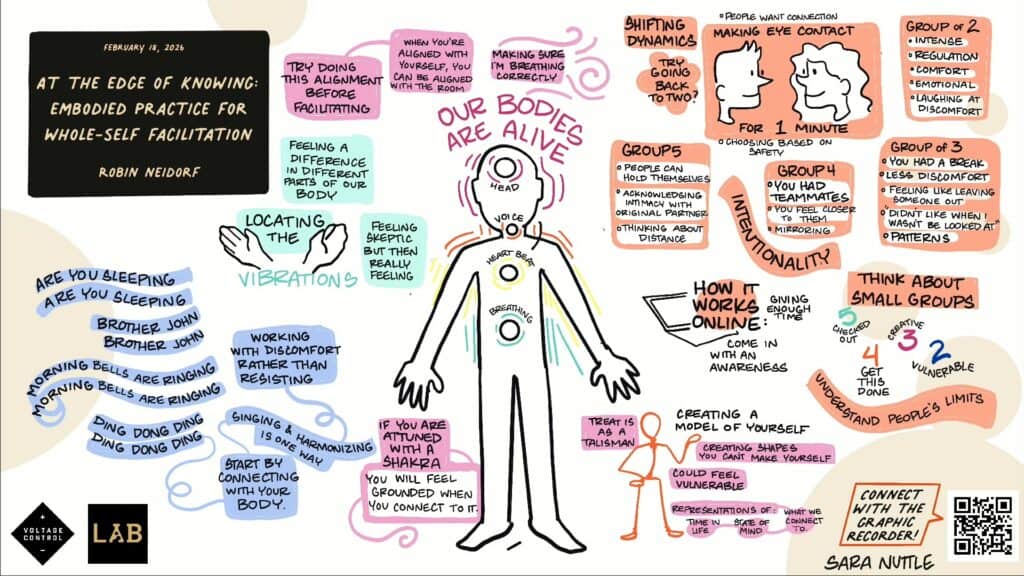 FEBRUARY 18, 2026
AT THE EDGE OF KNOWING:
EMBODIED PRACTICE FOR
WHOLE-SELF FACILITATION
ROBIN NEIDORF
TRY DOING
THIS ALIGNMENT
BEFORE
FACILITATING
WHEN YOU'RE
ALIGNED WITH
YOURSELF, YOU
CAN BE ALIGNED
WITH THE ROOM
MAKING SURE
I'M BREATHING
CORRECTLY
OUR BODIES
ARE ALIVE
HEAD
VOICE
HEART BEAT
BREATHING
FEELING A
DIFFERENCE
IN DIFFERENT
PARTS OF OUR
BODY
LOCATING
THE
VIBRATIONS
FEELING
SKEPTIC
BUT THEN
REALLY
FEELING
ARE YOU SLEEPING
ARE YOU SLEEPING
BROTHER JOHN
BROTHER JOHN
MORNING BELLS ARE RINGING
MORNING BELLS ARE RINGING
DING DONG DING
DING DONG DING
WORKING
WITH DISCOMFORT
RATHER THAN
RESISTING
SINGING & HARMONIZING
IS ONE WAY
START BY
CONNECTING
WITH YOUR
BODY.
IF YOU ARE
ATTUNED
WITH A
SHAKRA
YOU WILL FEEL
GROUNDED WHEN
YOU CONNECT TO IT.
SHIFTING
DYNAMICS
TRY
GOING
BACK
TO TWO?
PEOPLE WANT CONNECTION
MAKING EYE CONTACT
FOR 1 MINUTE
CHOOSING BASED ON
SAFETY
GROUP OF 2
INTENSE
REGULATION
COMFORT
EMOTIONAL
LAUGHING AT
DISCOMFORT
GROUP OF 3
YOU HAD A BREAK
LESS DISCOMFORT
FEELING LIKE LEAVING
SOMEONE OUT
"DIDN'T LIKE WHEN I
WASN'T BE LOOKED AT"
PATTERNS
GROUP 4
YOU HAD
TEAMMATES
YOU FEEL CLOSER
TO THEM
MIRRORING
GROUP 5
PEOPLE CAN
HOLD THEMSELVES
ACKNOWLEDGING
INTIMACY WITH
ORIGINAL PARTNER
THINKING ABOUT
DISTANCE
INTENTIONALITY
HOW IT
WORKS
ONLINE:
GIVING
ENOUGH
TIME
COME IN
WITH AN
AWARENESS
THINK ABOUT
SMALL GROUPS
5
CHECKED
OUT
4
GET
THIS
DONE
CREATIVE
3
2
VULNERABLE
UNDERSTAND PEOPLE'S LIMITS
TREAT IS
AS A
TALISMAN
CREATING A
MODEL OF YOURSELF
CREATING SHAPES
YOU CAN'T MAKE YOURSELF
COULD FEEL
VULNERABLE
REPRESENTATIONS OF:
TIME IN
LIFE
STATE OF
MIND
WHAT WE
CONNECT
TO.
VOLTAGE
CONTROL
LAB
CONNECT
WITH THE
GRAPHIC
RECORDER!
SARA NUTTLE